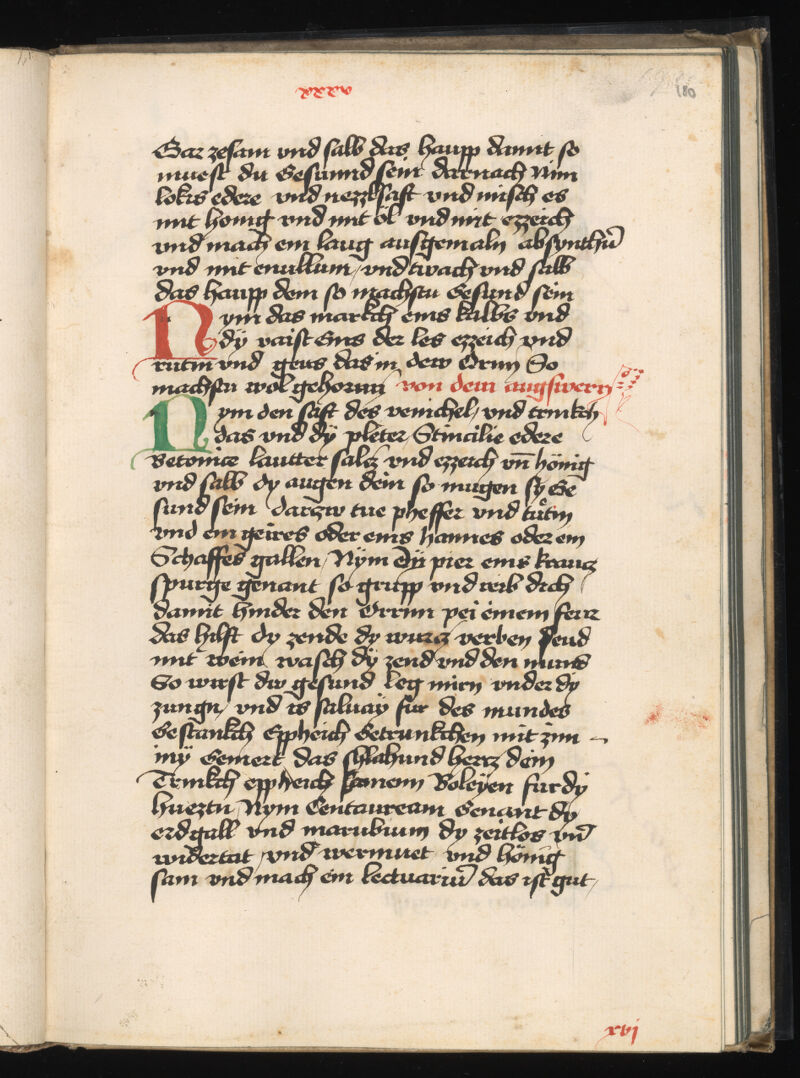 xxxv
180
Gar zesam vnd salb das haupp damit so
muest du Gesunnd sein darnach Nim
lokrs edere vnd nezzlsaft vnd misch es
mit honig vnd mit öl vnd mit ezzeich
vnd mach ein laug ausgemaln absynthiū
vnd mit enullum / vnd twach vnd salb
das haupp dein so machstu Gesund sein
Nym das markch eins kalbs vnd
dÿ vaist Gns der les ezzeich vnd
rutin vnd geus das in dew Orrnn So
machstu wol gehornn von dem augswern
Nym den saft des venichel / vnd trinkch
das vnd dÿ pleter Stincilie edere
Betonice lautter salcz vnd ezzeich vn̄ hönig
vnd salb dy augen dein so mugen sy Ge
sund sein darczw tue pheffer vnd tutin
vnd ein geires oder eins hannes oder ein
Schaffes gallen / Nÿm Dÿ pier eins krautz
spurge genant so grupp vnd reib dich
damit hinder den Orrnn pei einem ferr
das hilft dy zende dy wurcz verben seud
mit wein wasch dÿ zend vnd den munts
So wirst dw gesund leg mirn vnder dy
zungn / vnd is saluay fur des mundes
Gestankch Eppheich Getrunkchen mit zim
mÿ Gemert das schlahund hercz dein
Trinkch eppheich samenn Boleyen fur dy
huesztn / Nym Centauream Genant dy
erdgall vnd marubium dy zeitlos vn̄
widertat / vnd wermuet vnd hönig
sam vnd mach ein lectuariū das ist gut /
xvi